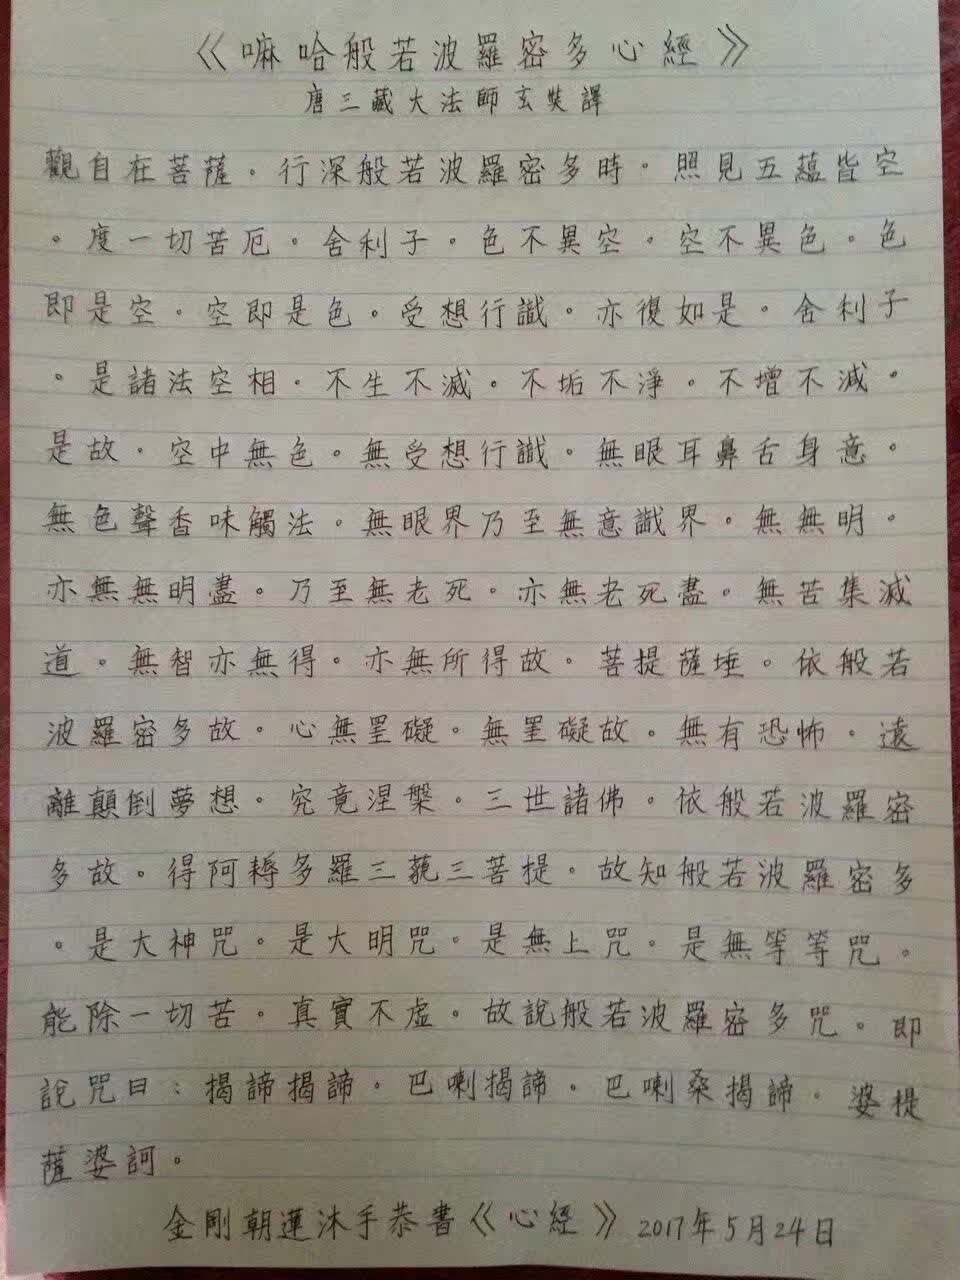 《嘛哈般若波羅密多心經》
唐三藏大法師玄奘譯
觀自在菩薩。行深般若波羅密多時。照見五蘊皆空
。度一切苦厄。舍利子。色不異空。空不異色。色
即是空。空即是色。受想行識。亦復如是。舍利子
。是諸法空相。不生不滅。不垢不淨。不增不減。
是故。空中無色。無受想行識。無眼耳鼻舌身意。
無色聲香味觸法。無眼界乃至無意識界。無無明。
亦無無明盡。乃至無老死。亦無老死盡。無苦集滅
道。無智亦無得。亦無所得故。菩提薩埵。依般若
波羅密多故。心無罣礙。無罣礙故。無有恐怖。遠
離顛倒夢想。究竟涅槃。三世諸佛。依般若波羅密
多故。得阿耨多羅三藐三菩提。故知般若波羅密多
。是大神咒。是大明咒。是無上咒。是無等等咒。
能除一切苦。真實不虛。故說般若波羅密多咒。即
說咒曰：揭諦揭諦。巴喇揭諦。巴喇桑揭諦。婆提
薩婆訶。
金剛朝蓮沐手恭書《心經》2017年5月24日